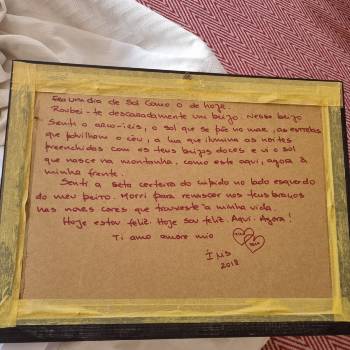 Era um dia de Sol como o de hoje.
Roubei-te descaradamente um beijo. Nesse beijo
Senti o arco-iris, o sol que se põe no mar, as estrelas
que polvilham o céu, a lua que ilumina as noites
preenchidas com os teus beijos doces e vi o sol
que nasce na montanha, como este aqui, agora à
minha frente.
Senti a seta certeira do cúpido no lado esquerdo
do meu peito. Morri para renascer nos teus braços
nas novas cores que trouxeste à minha vida.
Hoje estou feliz. Hoje sou feliz. Aqui. Agora!
Ti amo amore mio
2018